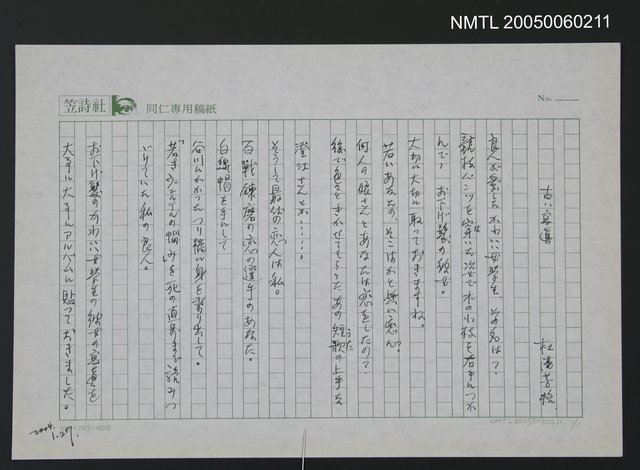 NMTL 20050060211
笠詩社
同仁専用稿紙
No.
古い寫真
杜潘芳格
良人が愛したかわいい女学生、その名は?
競技パンツを穿いた姿で木の小枝を右手につか
んで、お下げ髪の彼女。
大切に大切に取っておきますね。
若いあなたの、そこはかと無い恋ん。
何人の娘さんとあなたは恋をしたの?
後で色々ときかせてもらうたあの短歌の上手な
うた
澄江さんとか・・・・・
そうして最後の恋人は私。
百戦錬磨の恋の選手のあなた。
白線帽を手にして
谷川にかかったつり橋に身を乗り出して。
「若きウェルテルの悩み」を死の直前まで読みつ
づけていた私の良人。
お下げ髪のかわいい女学生の彼女の寫真を
大事に大事にアルバムに貼っておきました。
2004.
1.27.
NMTL20050060211 1/1